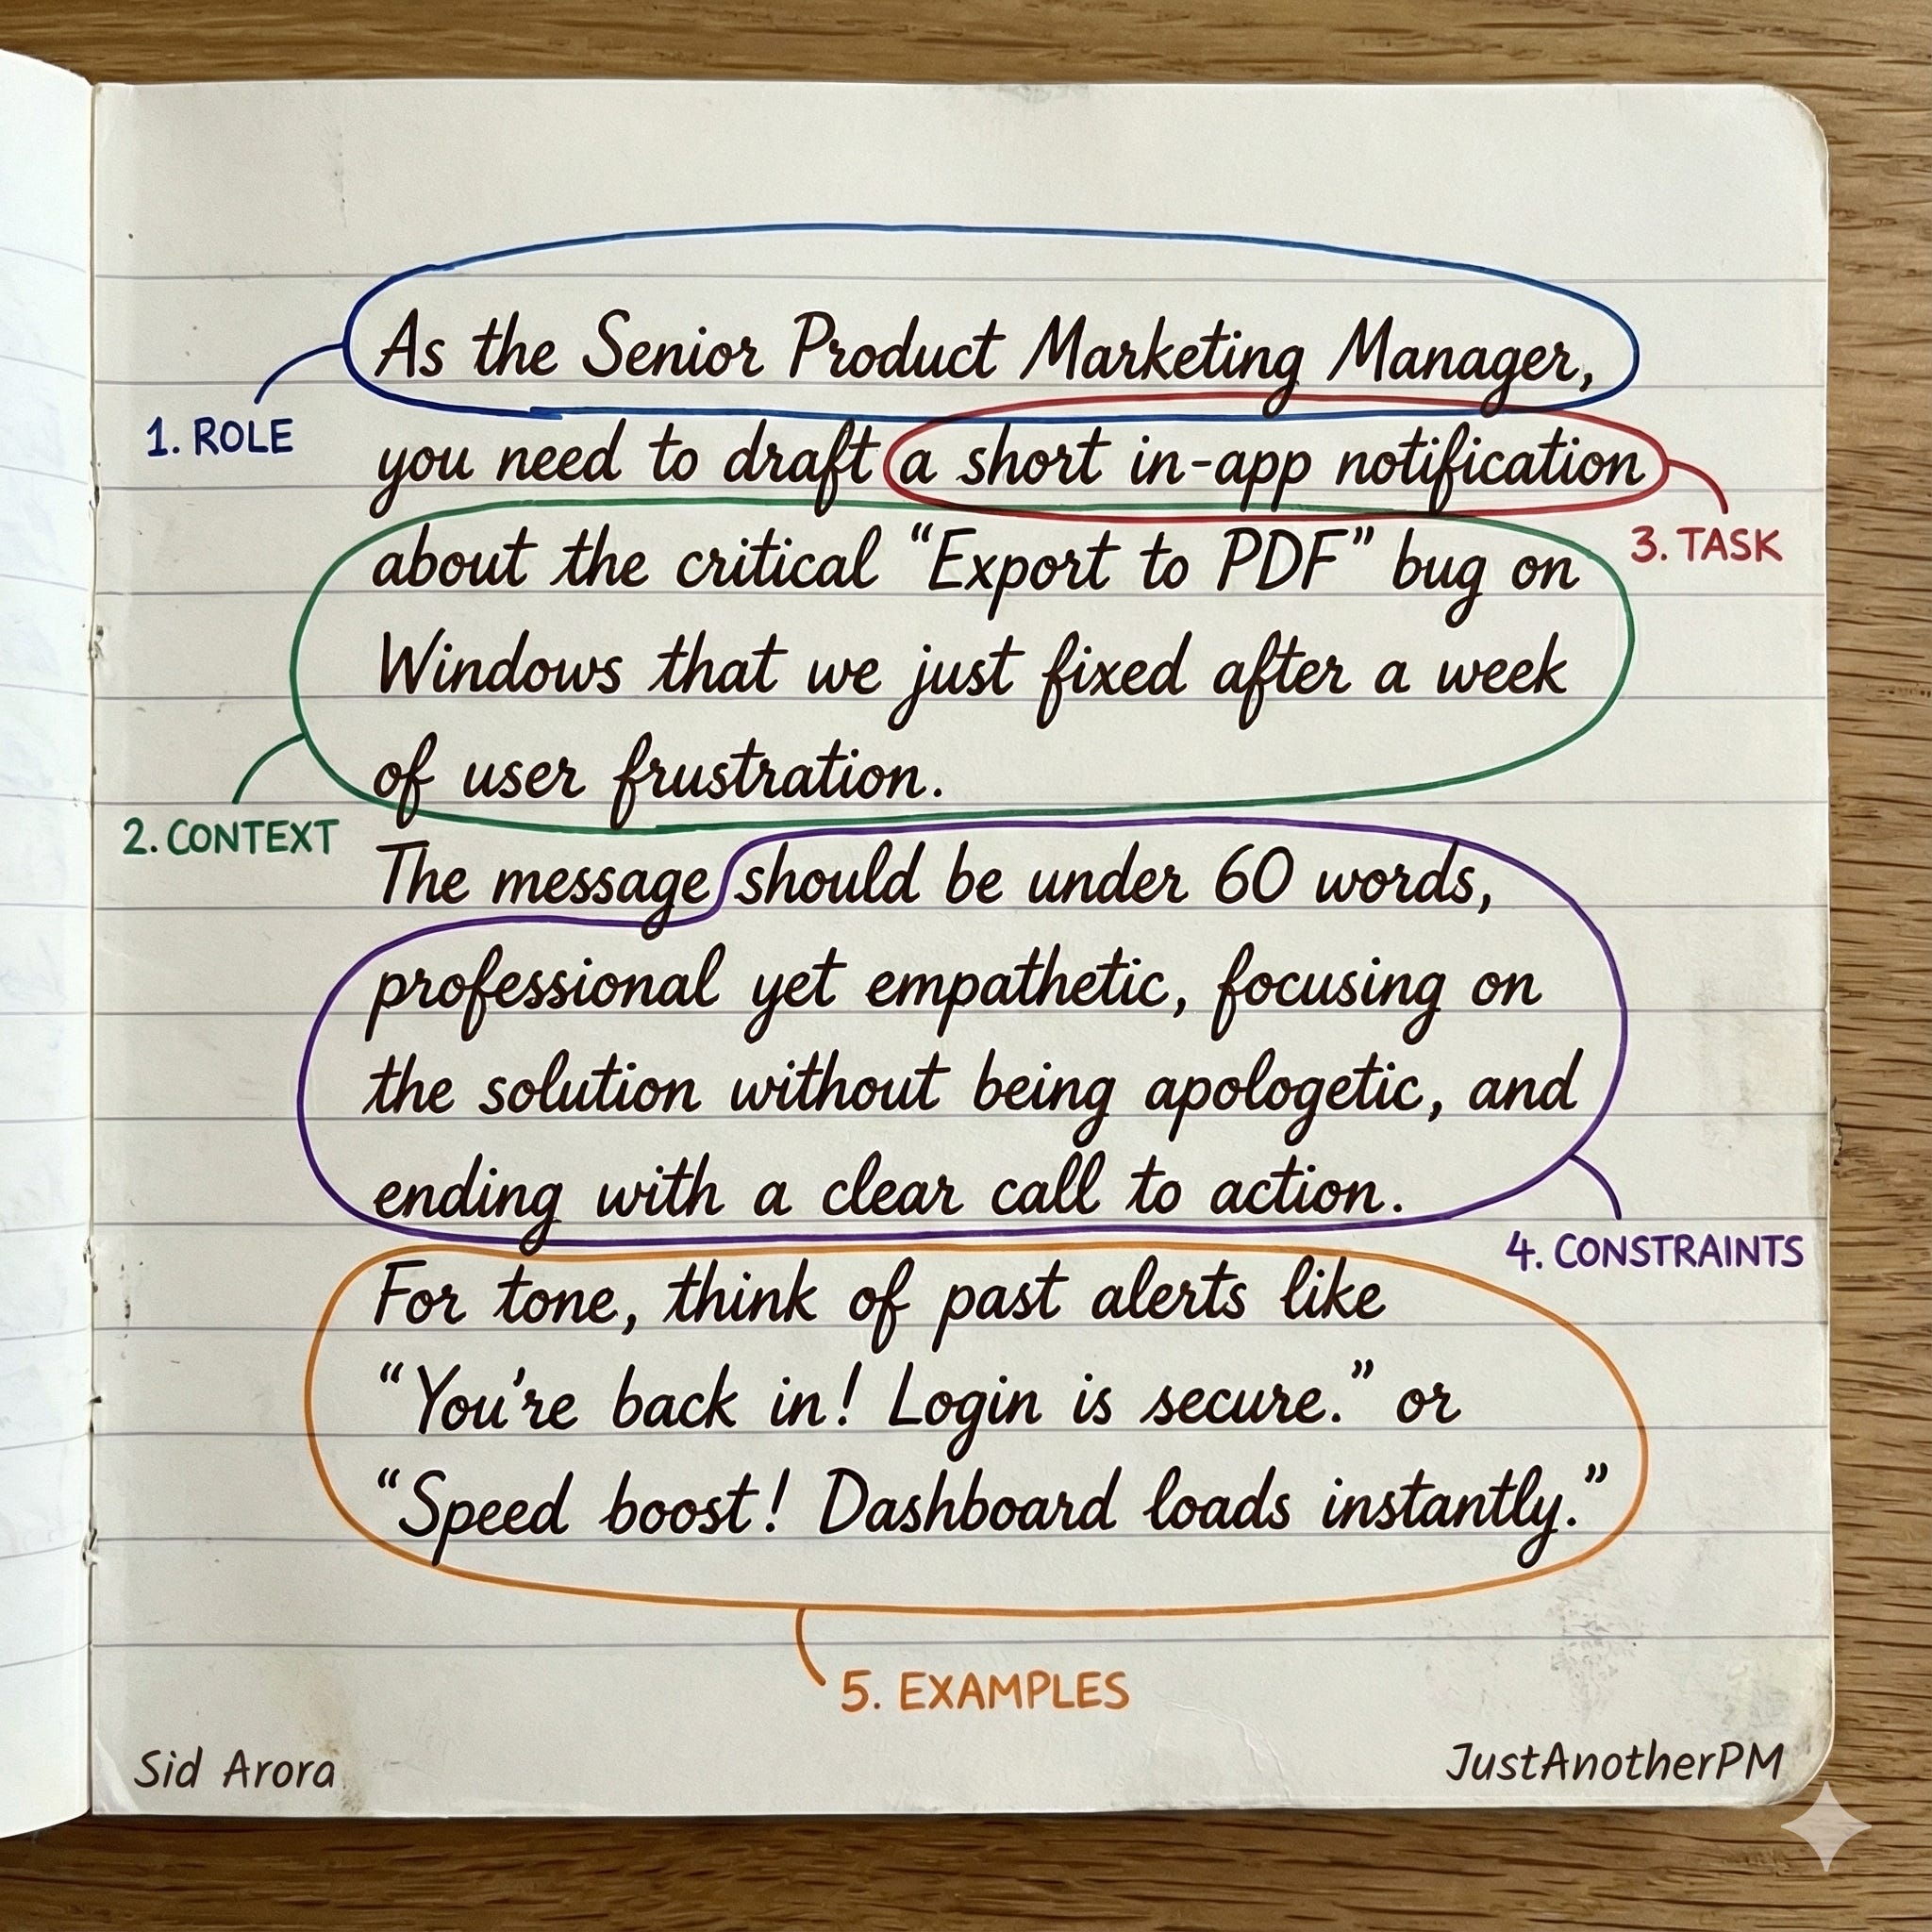 As the Senior Product Marketing Manager,
1. ROLE
you need to draft a short in-app notification
3. TASK
about the critical “Export to PDF” bug on
Windows that we just fixed after a week
of user frustration.
2. CONTEXT
The message should be under 60 words,
professional yet empathetic, focusing on
the solution without being apologetic, and
ending with a clear call to action.
4. CONSTRAINTS
For tone, think of past alerts like
“You’re back in! Login is secure.” or
“Speed boost! Dashboard loads instantly.”
5. EXAMPLES
Sid Arora
JustAnotherPM